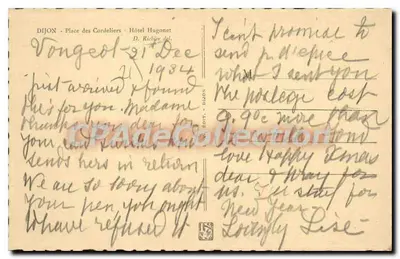 DIJON - Place des Cordeliers - Hôtel Hugonet
D. Richter del.
Vougeot 21st Dec
1934
just arrived & found
this for you. Madame
thanks you dear for
your card &
sends hers in return
We are so sorry about
your pen, you ought
to have refused it
I can't promise to
send p. d'epice
what I sent you
the postage cost
9.90c more than
love Happy Xmas
dear
us. stay for
New Year
Lovingly Lise
CPACollection